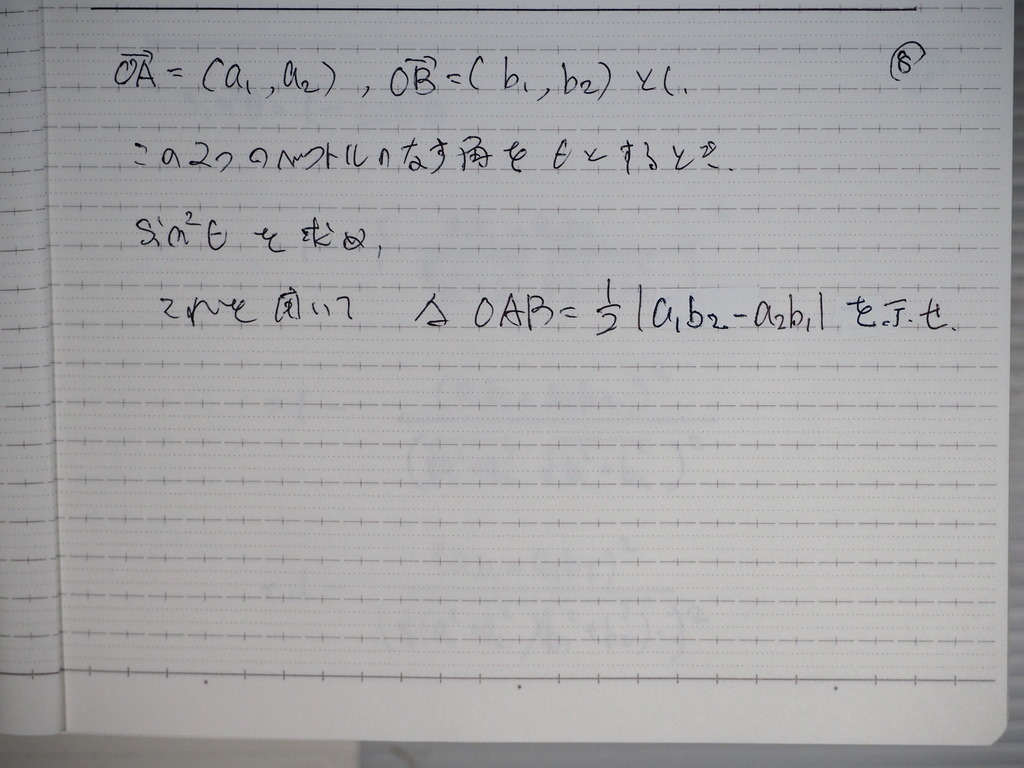 OA→ = (a₁, a₂), OB→ = (b₁, b₂) とし. ⑧
この2つのベクトルのなす角をθとするとき.
sin²θ を求め,
これを用いて △OAB = 1/2 |a₁b₂ - a₂b₁| を示せ.